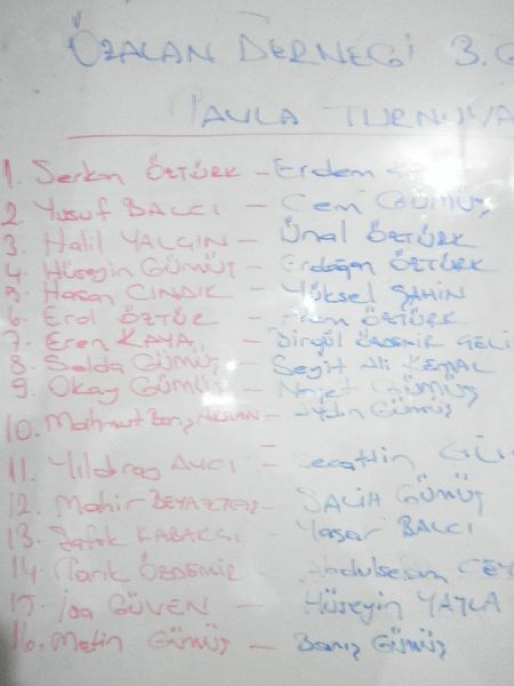 ÖZALAN DERNEGİ 3.
TAVLA TURNUVA
1. Serkan ÖZTÜRK - Erdem
2. Yusuf BALCI - Cem GÜMÜŞ
3. Halil YALÇIN - Ünal ÖZTÜRK
4. Hüseyin GÜMÜŞ - Erdoğan ÖZTÜRK
5. Hasan CINDIK - Yüksel ŞAHİN
6. Erol ÖZTÜR - ÖZTÜRK
7. Eren KAYA - Birgül ÖZDEMİR GELİ
8. Selda GÜMÜŞ - Seyit Ali KEMAL
9. Okay GÜMÜŞ - GÜMÜŞ
10. Mahmut Barış - Aydın GÜMÜŞ
11. Yıldıray AVCI -
12. Mahir BEYAZTAŞ - SALİH GÜMÜŞ
13. Şafak KABAKÇI - Yaşar BALCI
14. Tarık ÖZDEMİR
15. İsa GÜVEN - Hüseyin YAYLA
16. Metin GÜMÜŞ - Barış GÜMÜŞ